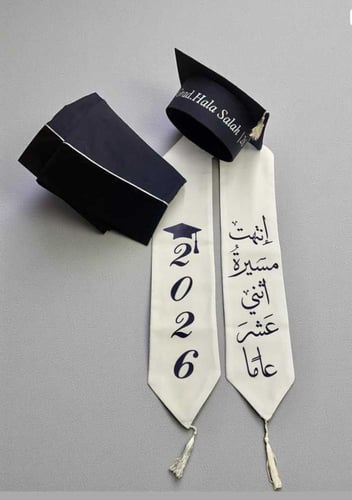 Grad.Hala Salah
2
0
2
6
إنتهت
مسيرةُ
أثني
عشرَ
عامًا